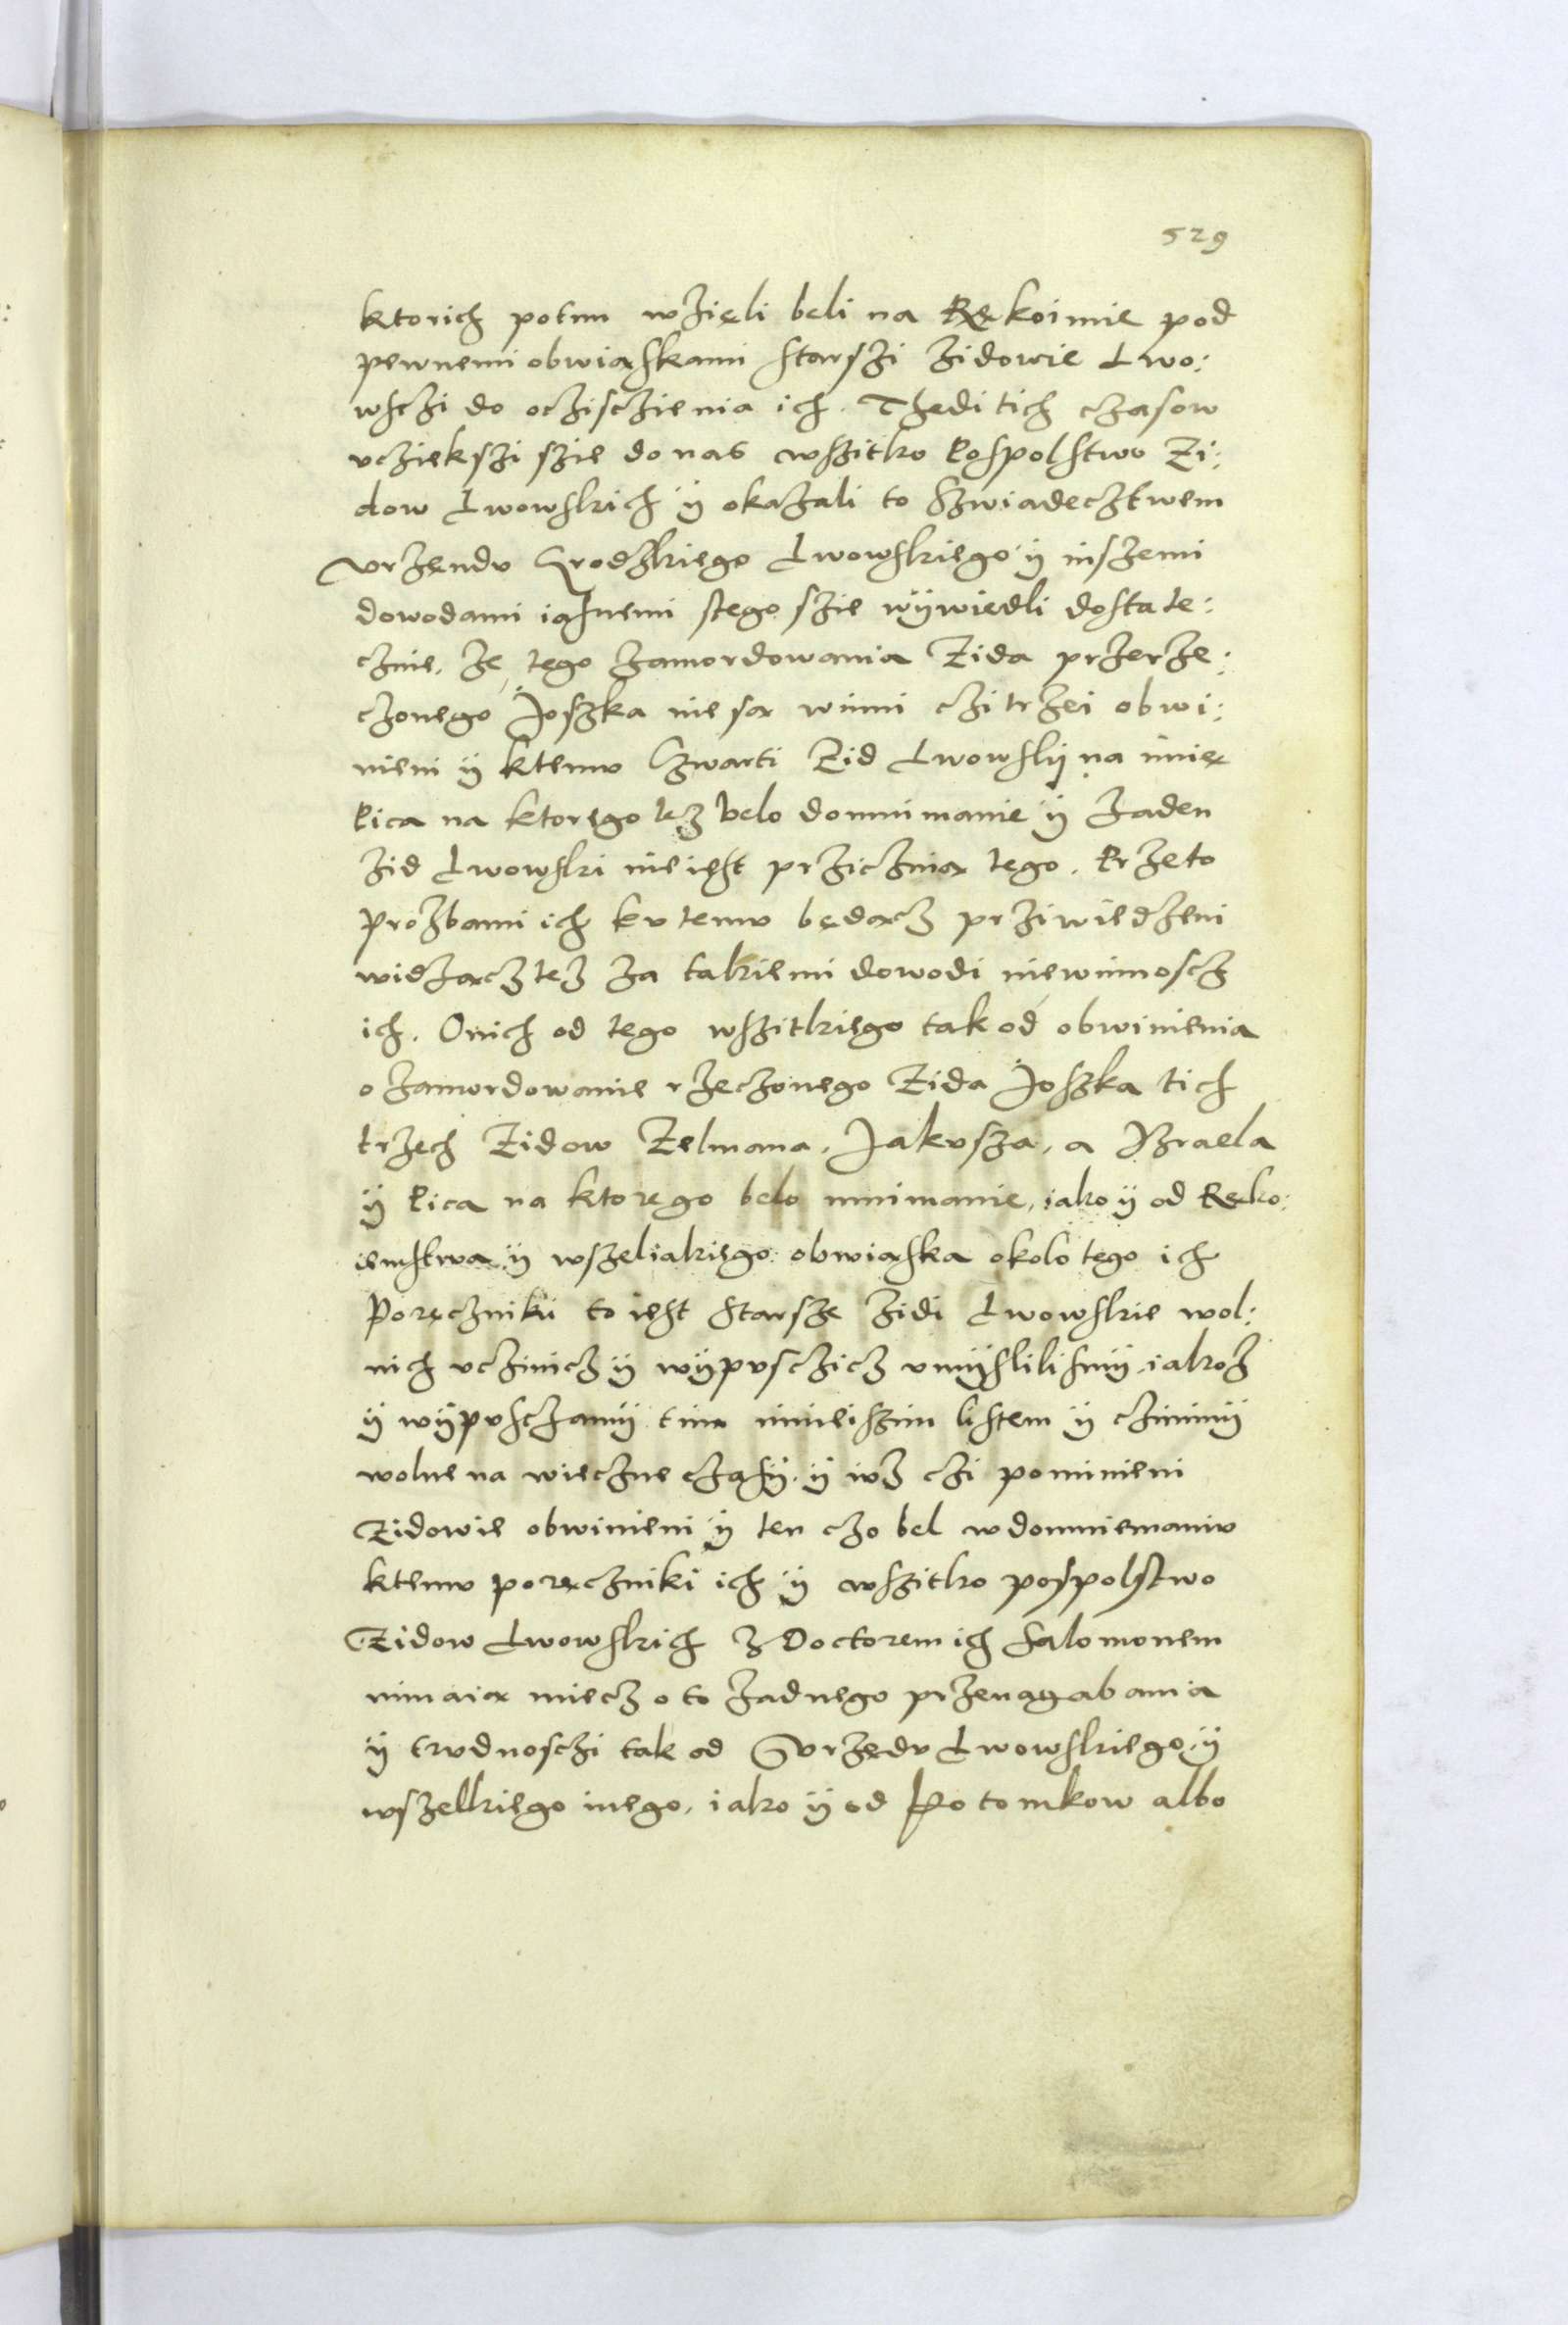 529
ktorich potim wzięli beli na Rękoimie pod
pewnemi obwiąskami starszi zidowie Lwo:
wsczi do oczisczienia ich. Thedi tich czasow
vcziekszi szie do nas wszitko Pospolstwo Zi:
dow Lwowskich ÿ okazali to Szwiadecztwem
vrzendv Grodzkiego Lwowskiego ÿ inszemi
dowodami iasnemi stego szie wÿwiedli dostate:
cznie. że tego zamordowania Zida przerze:
czonego Joszka nie są winni czi trzei obwi:
nieni ÿ ktemv Czwarti Zid Lwowskÿ na imię
Pica na ktorego tez belo domnimanie ÿ zaden
zid Lwowski nie iest przicznią tego. Przeto
prozbami ich kv temv będącz prziwiedzeni
widzącz tez za takiemi dowodi niewinnoscz
ich. Onich od tego wszitkiego tak od obwinienia
o zamordowanie rzeczonego Zida Joszka tich
trzech Zidow Zelmana, Jakvsza, a Izraela
ÿ Pica na ktorego belo mnimanie, iako ÿ od Ręko:
iemstwa ÿ wszeliakiego obwiąska okolo tego ich
Poręczniku to iest starsze zidi Lwowskie wol:
nich vczinicz ÿ wÿpvsczicz vmÿslilismÿ iakoz
ÿ wÿpvsczamÿ tim ninieiszim listem ÿ czinimÿ
wolne na wieczne czasÿ. ÿ ivz czi pominieni
Zidowie obwinieni ÿ ten czo bel w domniemaniv
ktemv poręczniki ich ÿ wszitko pospolstwo
Zidow Lwowskich z Doctorem ich Salomonem
nimaią miecz o to zadnego przenagabania
ÿ trvdnosczi tak od Vrzędv Lwowskiego ÿ
wszelkiego inego, iako ÿ od Potomkow albo